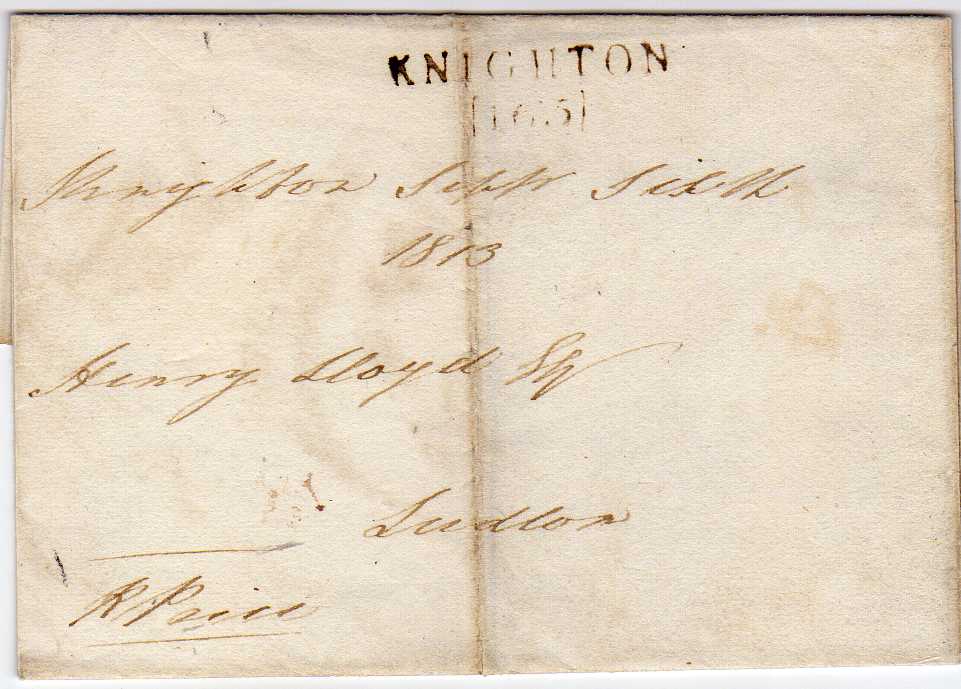 KNIGHTON
165
Knighton Septr Sixth
1813
Henry Lloyd Esqr
Ludlow
R Price